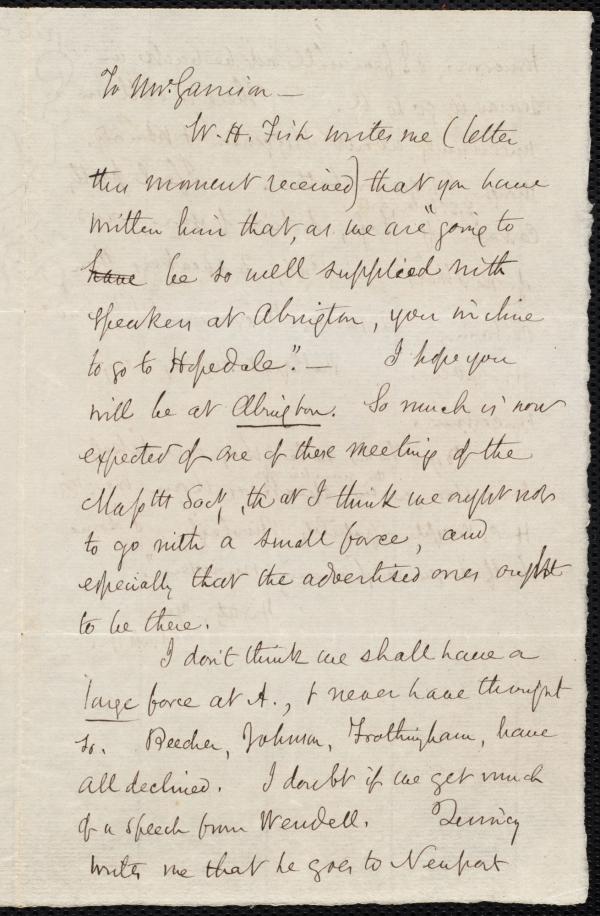 To Mr. Garrison —
W. H. Fish writes me (letter
this moment received) that you have
written him that, as we are "going to
have be so well supplied with
speakers at Abington, you incline
to go to Hopedale". — I hope you
will be at Abington. So much is now
expected of one of these meetings of the
Mass tts Socy, that I think we ought not
to go with a small force, and
especially that the advertised ones ought
to be there.
I don't think we shall have a
large force at A., & never have thought
so. Beecher, Johnson, Frothingham, have
all declined. I doubt if we get much
of a speech from Wendell. Quincy
writes me that he goes to Newport